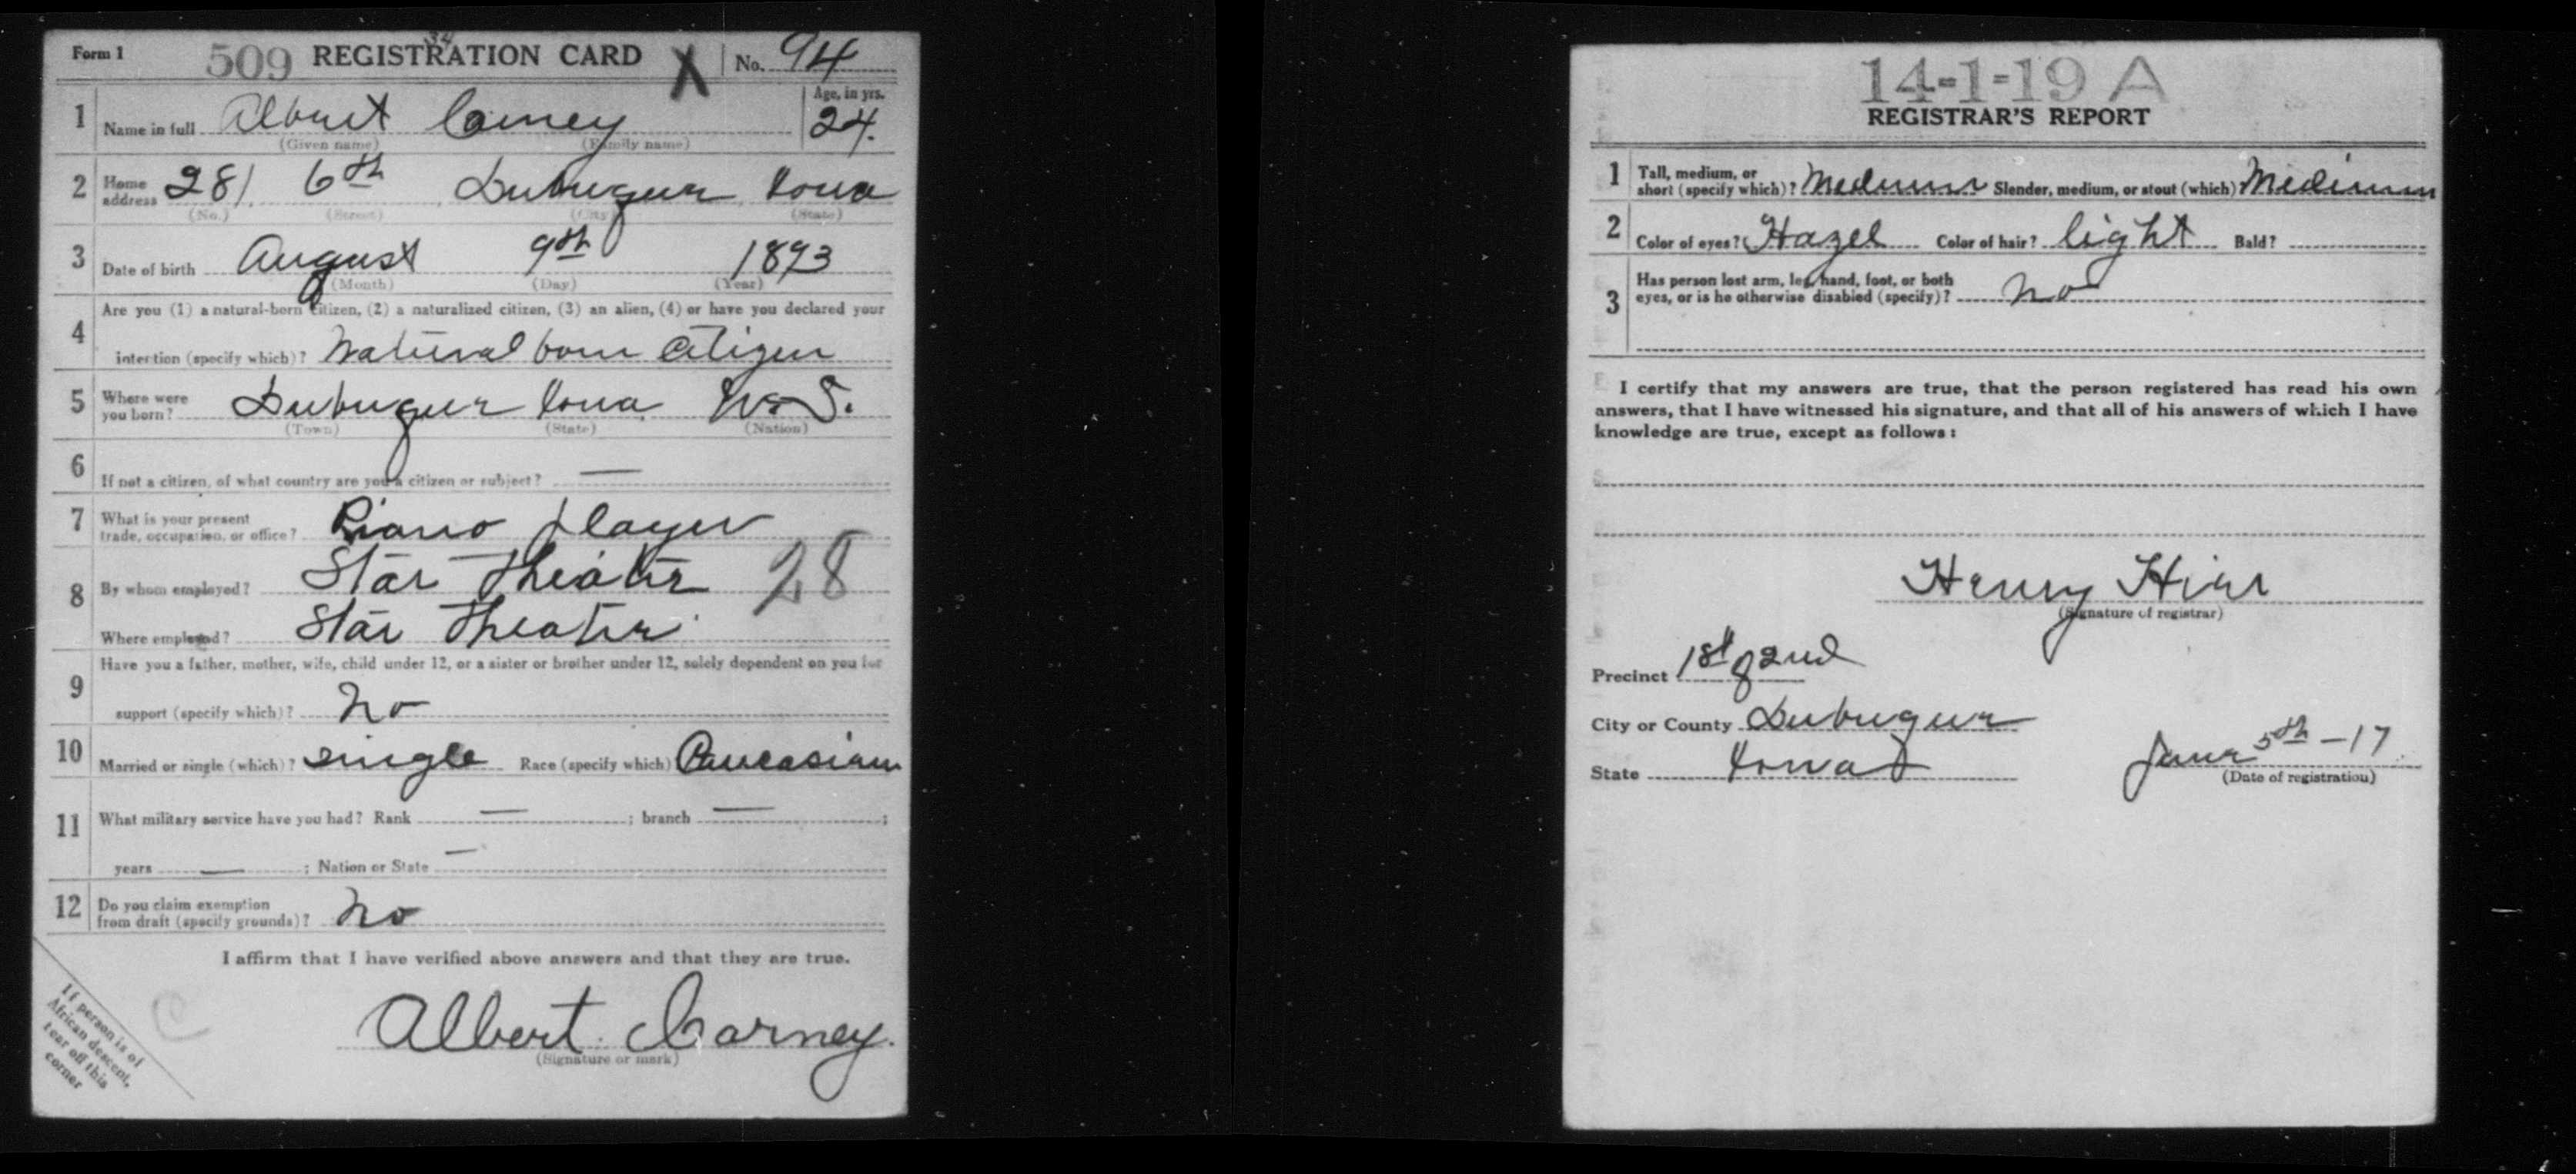 Form 1 509 REGISTRATION CARD X No. 94
34
1 Name in full Albert Carney Age, in yrs. 24.
(Given name) (Family name)
2 Home address 281 6th Dubuque Iowa
(No.) (Street) (City) (State)
3 Date of birth August 9th 1893
(Month) (Day) (Year)
4 Are you (1) a natural-born citizen, (2) a naturalized citizen, (3) an alien, (4) or have you declared your
intention (specify which)? Natural born Citizen
5 Where were you born? Dubuque Iowa U.S.
(Town) (State) (Nation)
6 If not a citizen, of what country are you a citizen or subject? —
7 What is your present trade, occupation, or office? Piano player
8 By whom employed? Star Theatre 28
Where employed? Star Theatre
9 Have you a father, mother, wife, child under 12, or a sister or brother under 12, solely dependent on you for
support (specify which)? No
10 Married or single (which)? single Race (specify which) Caucasian
11 What military service have you had? Rank — ; branch — ;
years — ; Nation or State —
12 Do you claim exemption from draft (specify grounds)? No
I affirm that I have verified above answers and that they are true.
Albert Carney.
(Signature or mark)
If person is of
African descent,
tear off this
corner
C
14-1-19 A
REGISTRAR'S REPORT
1 Tall, medium, or short (specify which)? Medium Slender, medium, or stout (which) Medium
2 Color of eyes? Hazel Color of hair? light Bald?
3 Has person lost arm, leg, hand, foot, or both
eyes, or is he otherwise disabled (specify)? no
I certify that my answers are true, that the person registered has read his own
answers, that I have witnessed his signature, and that all of his answers of which I have
knowledge are true, except as follows:
Henry
(Signature of registrar)
Precinct 1st 2nd
City or County Dubuque
State Iowa June 5th -17
(Date of registration)